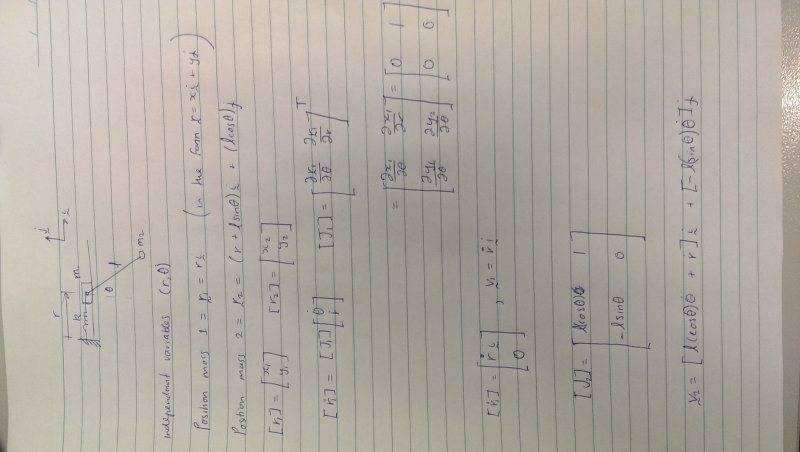 r
k
m
j
i
θ
l
m2
independant variables (r, θ)
Position mass 1 = r1 = r i (in the form r = x i + y j)
Position mass 2 = r2 = (r + l sinθ) i + (l cosθ) j
[r1] = [x1 y1] [r2] = [x2 y2]
[ṙ1] = [J1] [θ̇ ṙ] [J1] = [∂r1/∂θ ∂r1/∂r]T
= [∂x1/∂θ ∂x1/∂r ∂y1/∂θ ∂y2/∂θ] = [0 1 0 0]
[ṙ1] = [ṙ i 0] , v1 = ṙ i
[J2] = [l(cosθ) 1 -l sinθ 0]
v2 = [l(cosθ)θ̇ + ṙ] i + [-l(sinθ)θ̇] j